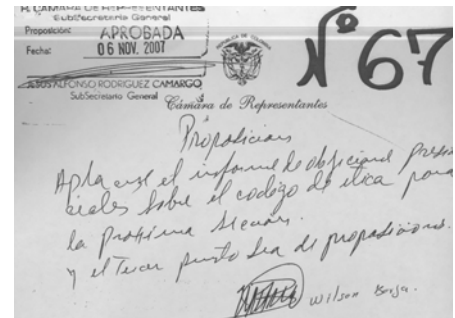 H. CAMARA DE REPRESENTANTES
Subsecretaria General
Proposición: APROBADA
Fecha: 06 NOV. 2007
JESUS ALFONSO RODRIGUEZ CAMARGO
SubSecretario General
REPUBLICA DE COLOMBIA
Cámara de Representantes
Nº 67
Proposicion
Aplacese el informe de objeciones presiden
ciales sobre el codigo de etica para
la proxima sesion.
y el Tercer punto sea de proposiciones.
Wilson Borja.